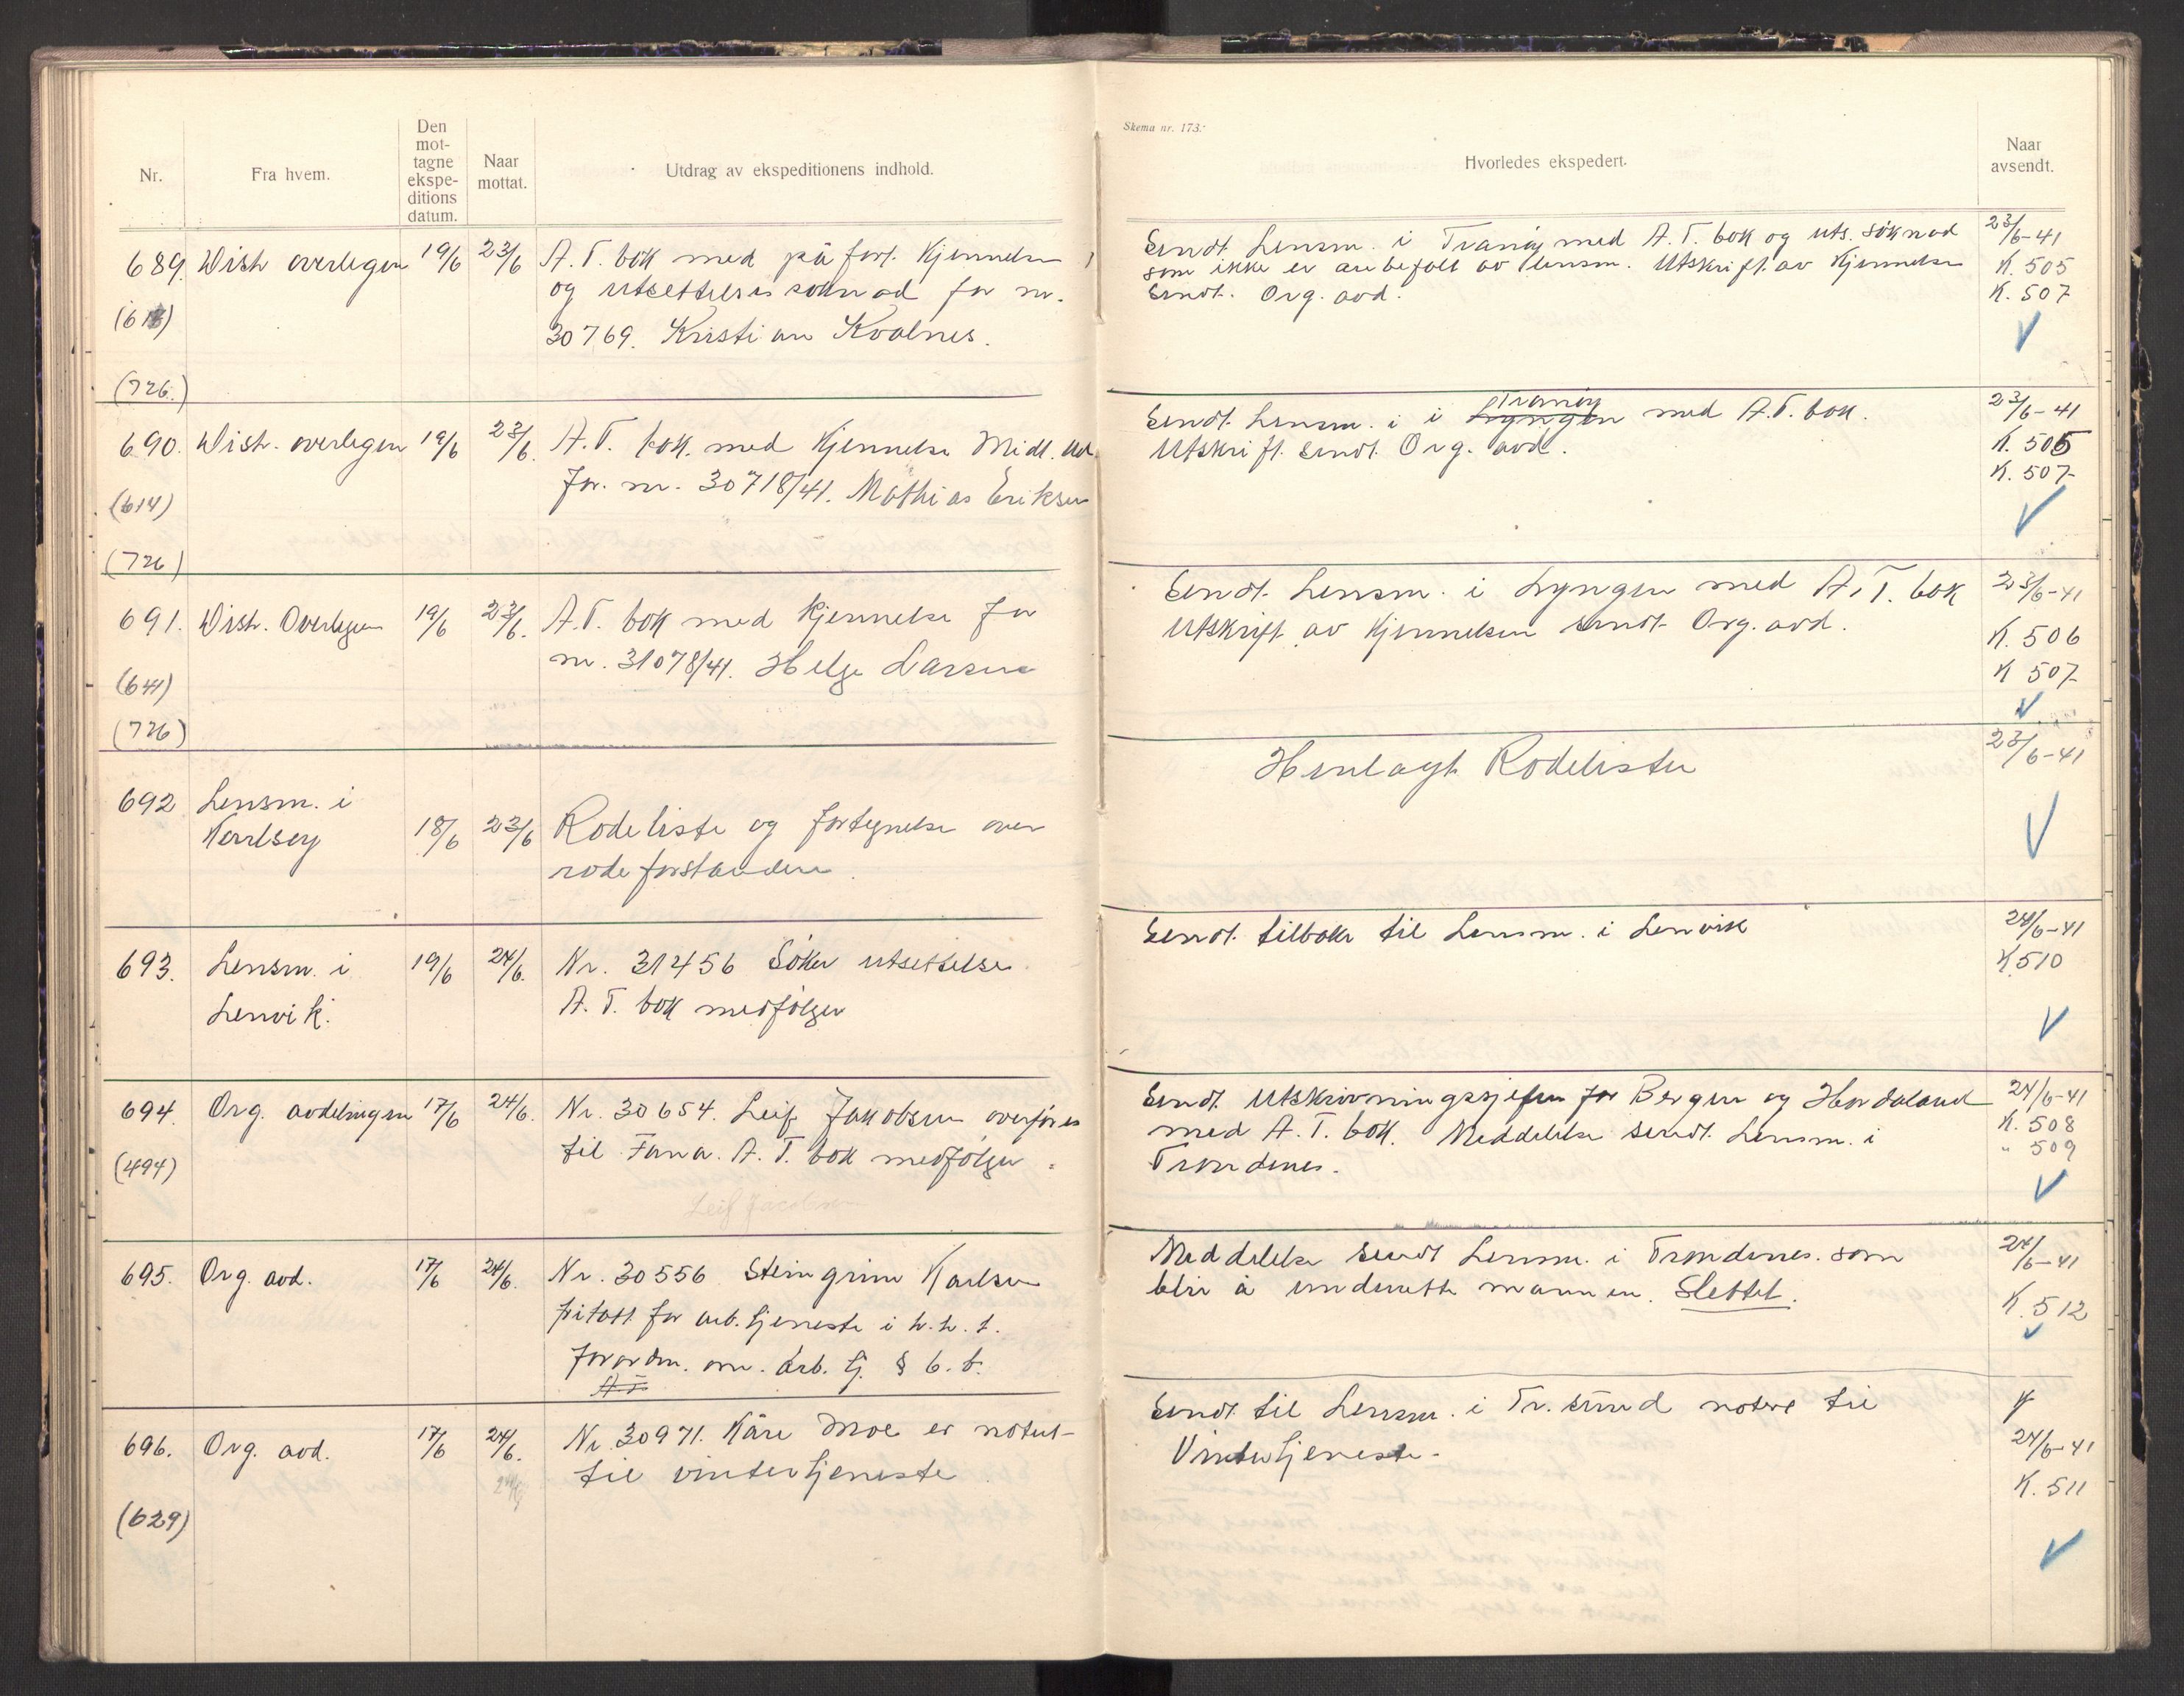 Nr.
Fra hvem.
Den mot-
tagne
ekspe-
ditions
datum.
Naar
mottat.
Utdrag av ekspeditionens indhold.
689. Distr. overlegen 19/6 23/6 A.T. bok med påført Kjennelse
og utsettelsessøknad for nr.
30769. Kristian Kvalnes.
(726.)
690. Distr. overlegen 19/6 23/6. A.T. bok med Kjennelse Midl. ud.
for nr. 30718/41. Mathias Eriksen
(614)
(726)
691. Distr. Overlegen 19/6 23/6. A.T. bok med kjennelse for
nr. 31078/41. Helge Larsen
(641)
(726)
692 Lensm. i
Karlsøy 18/6 23/6 Rodeliste og fortegnelse over
rodeforstandere.
693. Lensm. i 19/6 24/6. Nr. 31456 Søker utsettelse.
Lenvik. A.T. bok medfølger
694. Org. avdelingen 17/6 24/6. Nr. 30654. Leif Jakobsen overføres
(494) til Fana. A.T. bok medfølger.
Leif Jacobsen
695. Org. avd. 17/6 24/6. Nr. 30556 Steingrim Karlsen
fritatt for arb.tjeneste i h.h.t.
forordn. om. Arb. tj. § 6. b.
A.T.
696. Org. avd. 17/6 24/6. Nr. 30971. Kåre Moe er notert
til vintertjeneste.
(629)
Skema nr. 173.
Hvorledes ekspedert.
Naar
avsendt.
Sendt Lensm. i Tranøy med A.T. bok og uts. søknad 23/6-41
som ikke er anbefalt av lensm. Utskrift av Kjennelse K. 505
sendt. Org. avd. K. 507
Sendt Lensm. i i Lyngen Tranøy med A.T. bok. 23/6-41
Utskrift sendt Org. avd. K. 505
K. 507
Sendt Lensm. i Lyngen med A.T. bok 23/6-41
Utskrift av Kjennelsen sendt Org. avd. K. 506
K 507
Henlagt Rodelister 23/6-41
Sendt tilbake til Lensm. i Lenvik 24/6-41
K.510
Sendt Utskrivningssjefen for Bergen og Hordaland 24/6-41
med A.T. bok. Meddelelse sendt Lensm. i K. 508
Trondenes. " 509
Meddelelse sendt Lensm. i Trondenes. som 24/6-41
blir å underrette mannen. Slettet. K. 512
Sendt til Lensm. i Tr.sund notert til
Vintertjeneste. 24/6-41
K. 511